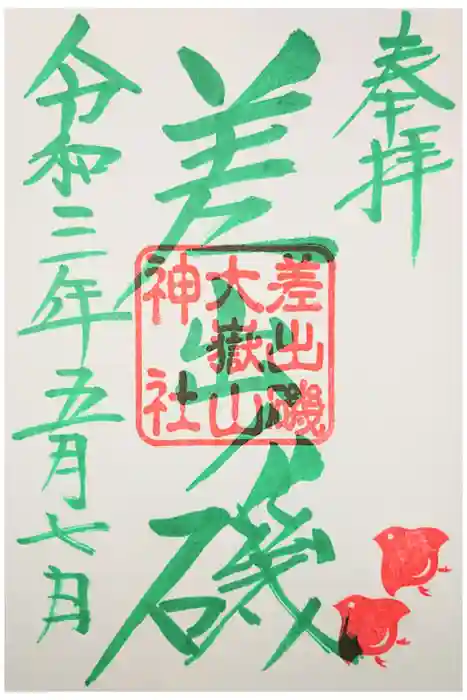 奉拝
差出磯
差出磯
大嶽山
神社
令和三年五月七日